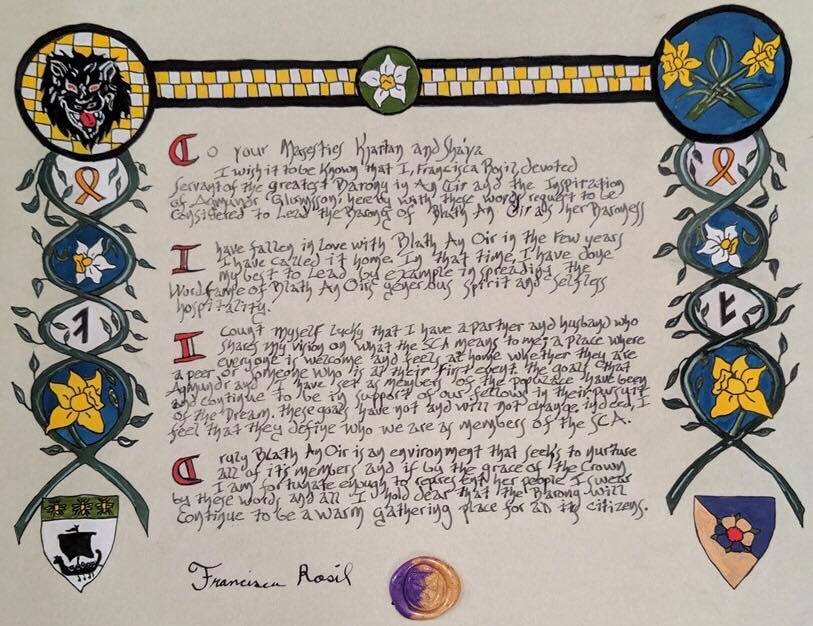 To your Majesties Kjartan and Sha'ya
I wish it to be known that I, Francisca Rosil, devoted
servant of the greatest Barony in An Tir and the Inspiration
of Agmundr Glumsson, hereby with these words request to be
considered to Lead the Barony of Blath An Oir as her Baroness
I have fallen in Love with Blath An Oir in the few years
I have called it home. In that time, I have done
my best to Lead by example in spreading the
Word fame of Blath An Oirs generous Spirit and selfless
hospitality.
I count myself Lucky that I have a partner and husband who
shares my vision on what the SCA means to me; a place where
everyone is welcome and feels at home whether they are
a peer or someone who is at their first event. The goals that
Agmundr and I have set as members of the populace have been
and continue to be in support of our fellows in their pursuit
of the Dream. These goals have not and will not change, indeed, I
feel that they define who we are as members of the SCA.
Truly Blath An Oir is an environment that seeks to nurture
all of it's members and if by the grace of the Crown
I am fortunate enough to represent her people I swear
by these words and all I hold dear that the Barony will
continue to be a warm gathering place for all its citizens.
Francisca Rosil